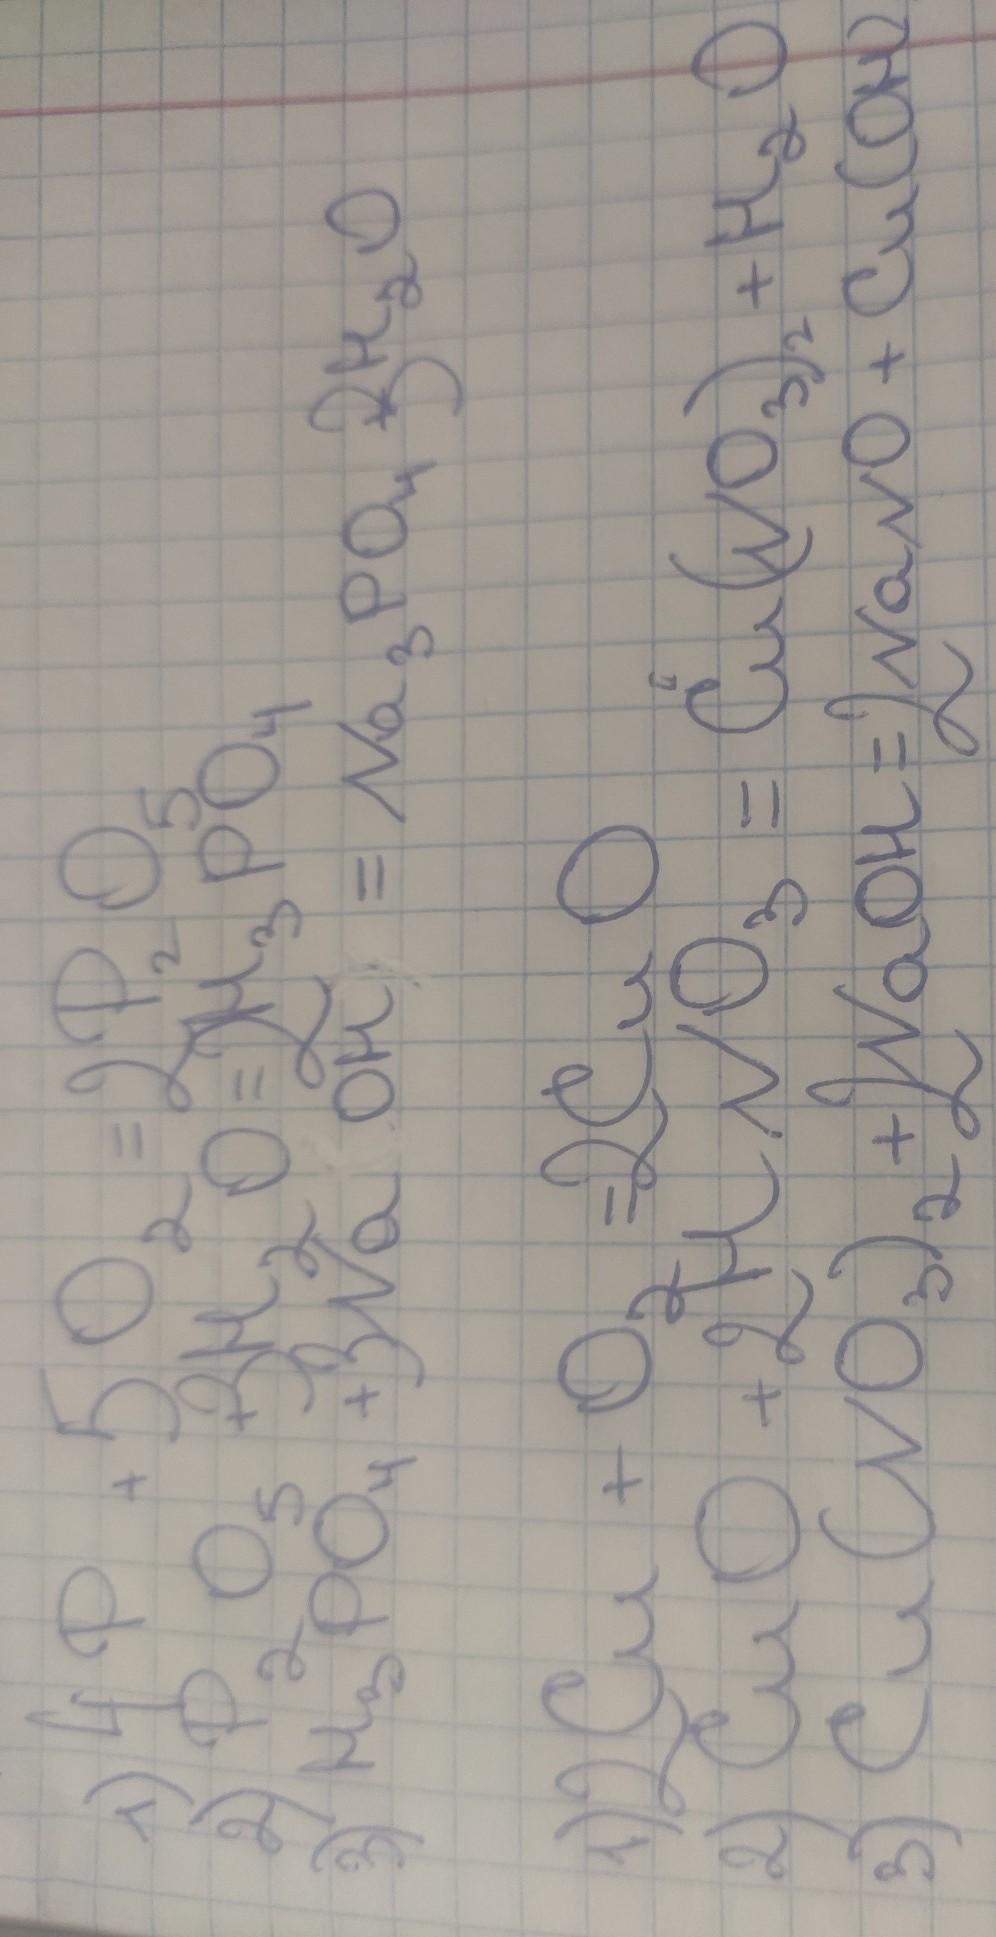 1) 4P + 5O₂ = 2P₂O₅
2) P₂O₅ + 3H₂O = 2H₃PO₄
3) H₃PO₄ + 3NaOH = Na₃PO₄ + 3H₂O
1) 2Cu + O₂ = 2CuO
2) CuO + 2HNO₃ = Cu(NO₃)₂ + H₂O
3) Cu(NO₃)₂ + 2NaOH = 2NaNO + Cu(OH)